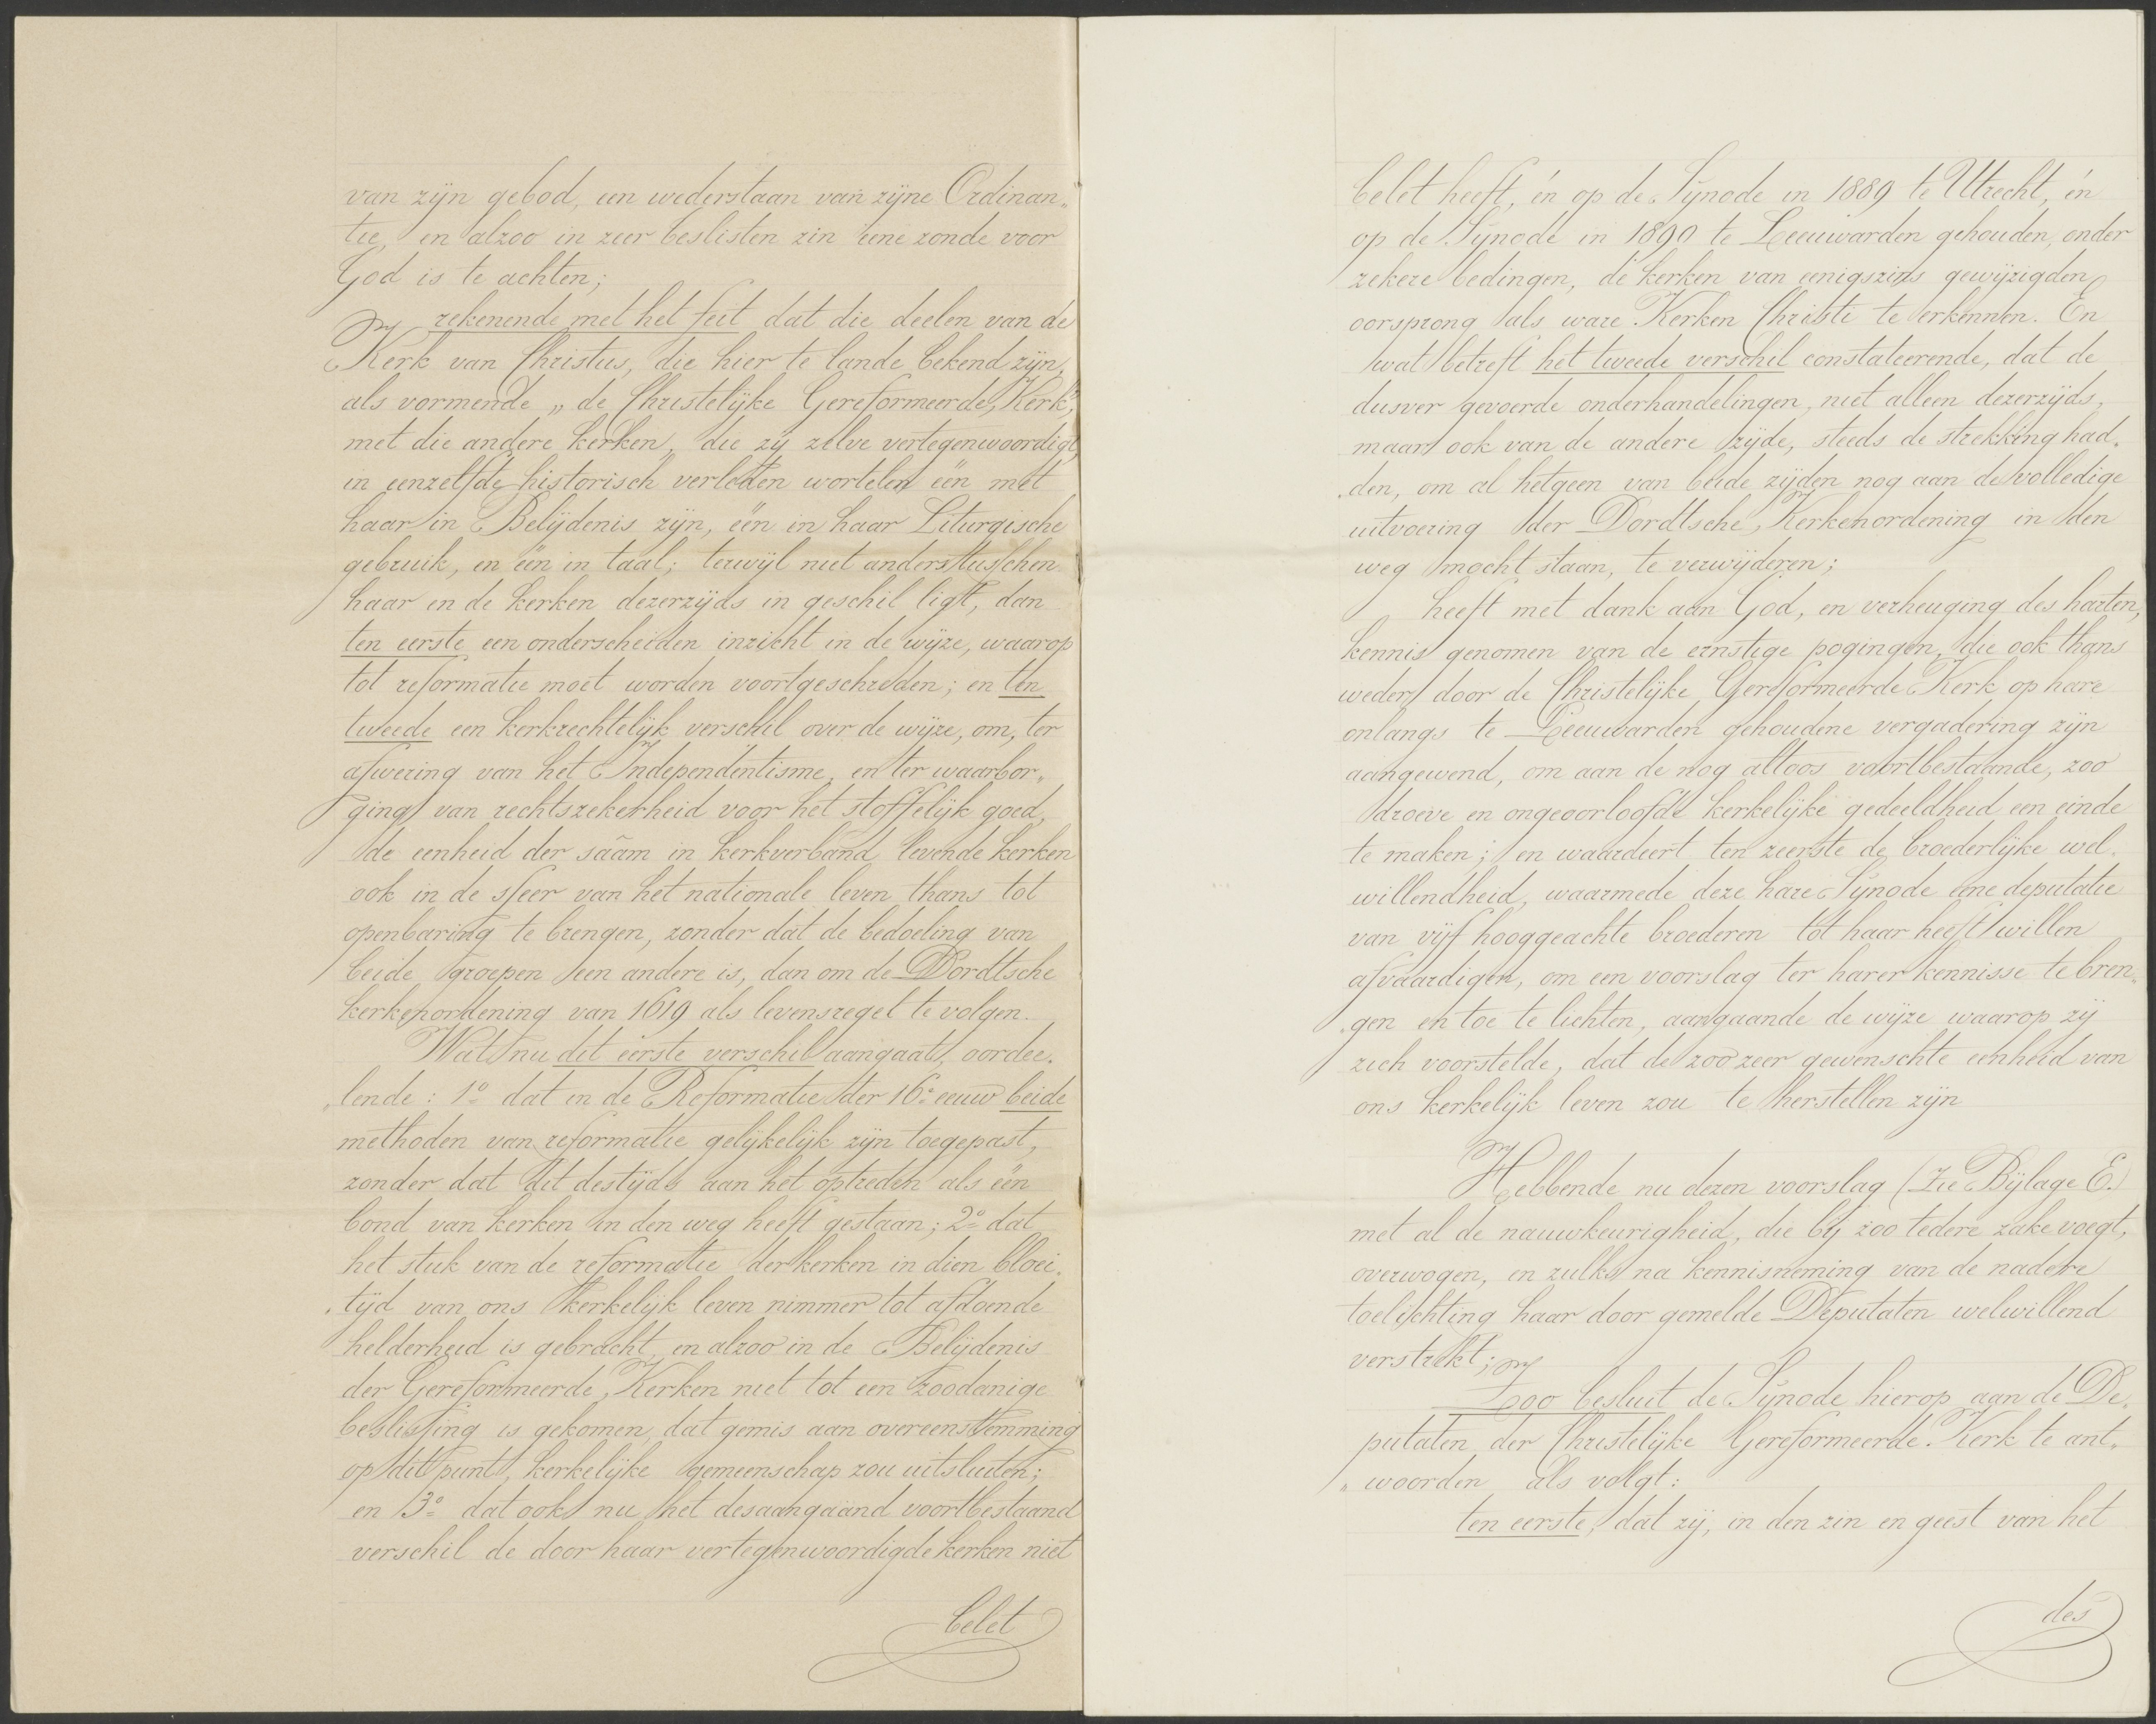 van zijn gebod, een wederstaan van zijne Ordinan„
tie, en alzoo in zeer beslisten zin eene zonde voor
God is te achten;
rekenende met het feit dat die deelen van de
Kerk van Christus, die hier te lande bekend zijn,
als vormende „de Christelijke Gereformeerde Kerk",
met die andere kerken, die zij zelve vertegenwoordigt,
in eenzelfde historisch verleden wortelen één met
haar in Belijdenis zijn, één in haar Liturgische
gebruik, en één in taal; terwijl niet anders tusschen
haar en de kerken dezerzijds in geschil ligt, dan
ten eerste een onderscheiden inzicht in de wijze, waarop
tot reformatie moet worden voortgeschreden; en ten
tweede een kerkrechtelijk verschil over de wijze, om, ter
afwering van het Independentisme, en ter waarbor„
ging van rechtszekerheid voor het stoffelijk goed,
de eenheid der saâm in kerkverband levende kerken
ook in de sfeer van het nationale leven thans tot
openbaring te brengen, zonder dat de bedoeling van
beide groepen een andere is, dan om de Dordtsche
kerkenordening van 1619 als levensregel te volgen.
Wat nu dit eerste verschil aangaat, oordee„
„lende: 1o dat in de Reformatie der 16e eeuw beide
methoden van reformatie gelijkelijk zijn toegepast,
zonder dat dit destijds aan het optreden als één
bond van kerken in den weg heeft gestaan; 2o dat
het stuk van de reformatie der kerken in dien bloei„
„tijd van ons kerkelijk leven nimmer tot afdoende
helderheid is gebracht, en alzoo in de Belijdenis
der Gereformeerde Kerken niet tot een zoodanige
beslissing is gekomen, dat gemis aan overeenstemming
op dit punt, kerkelijke gemeenschap zou uitsluiten;
en 3o dat ook nu het desaangaand voortbestaand
verschil de door haar vertegenwoordigde kerken niet
belet
belet heeft, én op de Synode in 1889 te Utrecht, én
op de Synode in 1890 te Leeuwarden gehouden, onder
zekere bedingen, de kerken van eenigszins gewijzigden
oorsprong als ware Kerken Christi te erkennen. En
wat betreft het tweede verschil constateerende, dat de
dusver gevoerde onderhandelingen, niet alleen dezerzijds,
maar ook van de andere zijde, steeds de strekking had„
„den, om al hetgeen van beide zijden nog aan de volledige
uitvoering der Dordtsche Kerkenordening in den
weg mocht staan, te verwijderen;
heeft met dank aan God, en verheuging des harten,
kennis genomen van de ernstige pogingen, die ook thans
weder door de Christelijke Gereformeerde Kerk op hare
onlangs te Leeuwarden gehoudene vergadering zijn
aangewend, om aan de nog altoos voortbestaande, zoo
droeve en ongeoorloofde kerkelijke gedeeldheid een einde
te maken; en waardeert ten zeerste de broederlijke wel„
willendheid, waarmede deze hare Synode eene deputatie
van vijf hooggeachte broederen tot haar heeft willen
afvaardigen, om een voorslag ter harer kennisse te bren„
„gen en toe te lichten, aangaande de wijze waarop zij
zich voorstelde, dat de zoo zeer gewenschte eenheid van
ons kerkelijk leven zou te herstellen zijn
Hebbende nu dezen voorslag (Zie Bijlage E.)
met al de nauwkeurigheid, die bij zoo tedere zake voegt,
overwogen, en zulks na kennisneming van de nadere
toelichting haar door gemelde Deputaten welwillend
verstrekt;
Zoo besluit de Synode hierop aan de De„
putaten der Christelijke Gereformeerde Kerk te ant„
„woorden als volgt:
ten eerste, dat zij, in den zin en geest van het
des